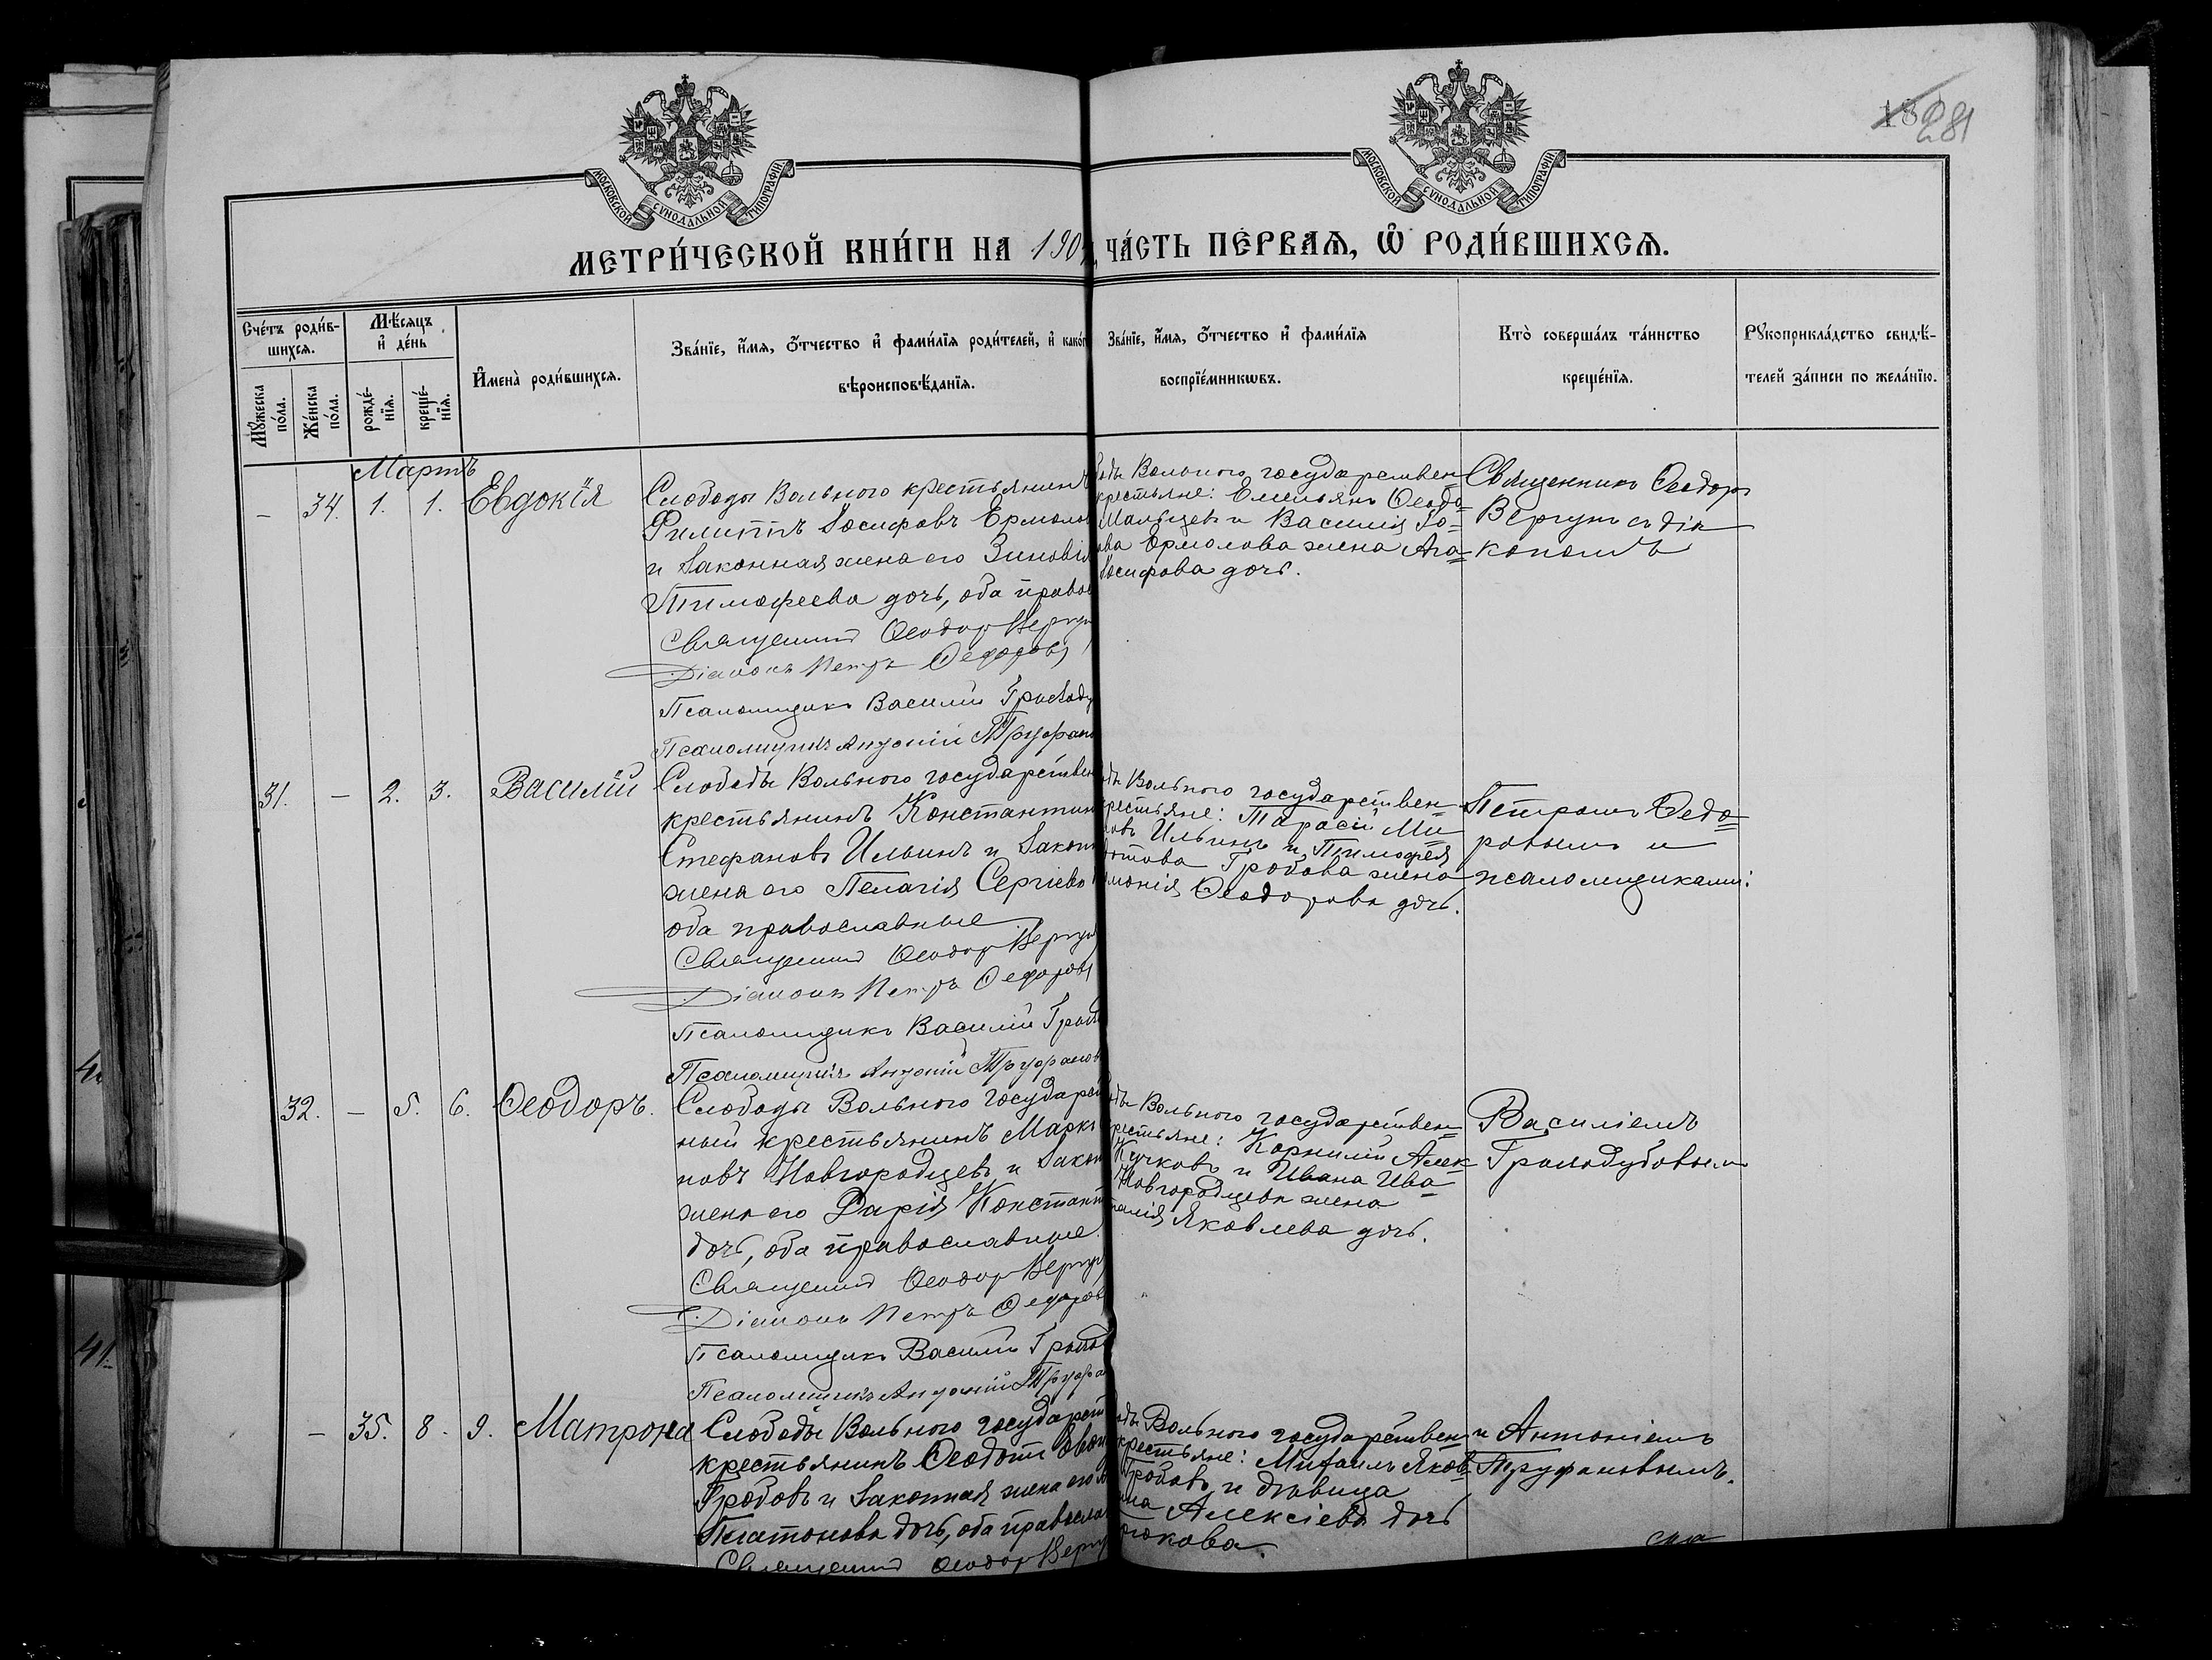 МОСКОВСКОЙ СУНОДАЛЬНОЙ ТИПОГРАФІИ
МОСКОВСКОЙ СУНОДАЛЬНОЙ ТИПОГРАФІИ
281
МЕТРИ́ЧЕСКОЙ КНИ́ГИ НА 190 ЧА́СТЬ ПЕ́РВАЯ, Ѿ РОДИ́ВШИХСЯ.
Сче́тъ роди́в-
шихся.
Мꙋ́жеска по́ла.
Же́нска по́ла.
Мѣ́сяцъ и де́нь
рожде́-
нїя.
креще́-
нїя.
Имена̀ роди́вшихся.
Зва́нїе, и́мя, ѻ́тчество и фами́лїя роди́телей, и како́г
вѣроисповѣ́данїя.
Зва́нїе, и́мя, ѻ́тчество и фами́лїя
воспрїе́мникѡвъ.
Кто̀ соверша́лъ та́инство
креще́нїя.
Рꙋкоприкла́дство свидѣ́-
телей за́писи по жела́нїю.
Мартъ
– 34. 1. 1. Евдокія
Слободы Вольного крестьянинъ
Филиппъ Іосифовъ Ермолов
и законная жена его Зиновія
Тимофеева дочь, оба правос
Священникъ Ѳеодоръ Вергун
Діаконъ Петръ Ѳедоровъ
Псаломщикъ Василій
Псаломщикъ Антоній Труфано
ды Вольного государствен-
крестьяне: Емельянъ Ѳеодо-
Мальцевъ и Василія Іо-
ова Ермолова жена Ага-
Іосифова дочь.
Священникъ Ѳеодоръ
Вергунъ съ діа
кономъ
31. – 2. 3. Василій
Слободы Вольного государствен
крестьянинъ Константин
Стефановъ Ильинъ и закон
жена его Пелагія Сергіева
оба православные
Священникъ Ѳеодоръ Вергун
Діаконъ Петръ Ѳедоровъ
Псаломщикъ Василій
Псаломщикъ Антоній Труфанов
ды Вольного государствен-
рестьяне: Тарасій Ми-
овъ Ильинъ и Тимофея
Гробова жена
монія Ѳеодорова дочь.
Петромъ Ѳедо-
ровымъ и
псаломщиками:
32. – 5. 6. Ѳеодоръ.
Слободы Вольного государст
ный крестьянинъ Маркъ
новъ Новгородцевъ и закон
жена его Дарія Констант
дочь, оба православные.
Священникъ Ѳеодоръ Вергун
Діаконъ Петръ Ѳедоров
Псаломщикъ Василій
Псаломщикъ Антоній Труфа
ды Вольного государствен-
рестьяне: Корнилій Алек
Кучковъ и Ивана Ива-
Новгородцева жена
талія Яковлева дочь.
Василіемъ
Громодубовымъ
– 35. 8. 9. Матрона
Слободы Вольного государст
крестьянинъ Ѳеодотъ
Гробовъ и законная жена его
Платонова дочь, оба правосла
Священникъ Ѳеодоръ Вергу
ды Вольного государствен
крестьяне: Михаилъ Яков
Гробовъ и дѣвица
Алексіева дочь
рюкова.
и Антоніемъ
Труфановымъ.